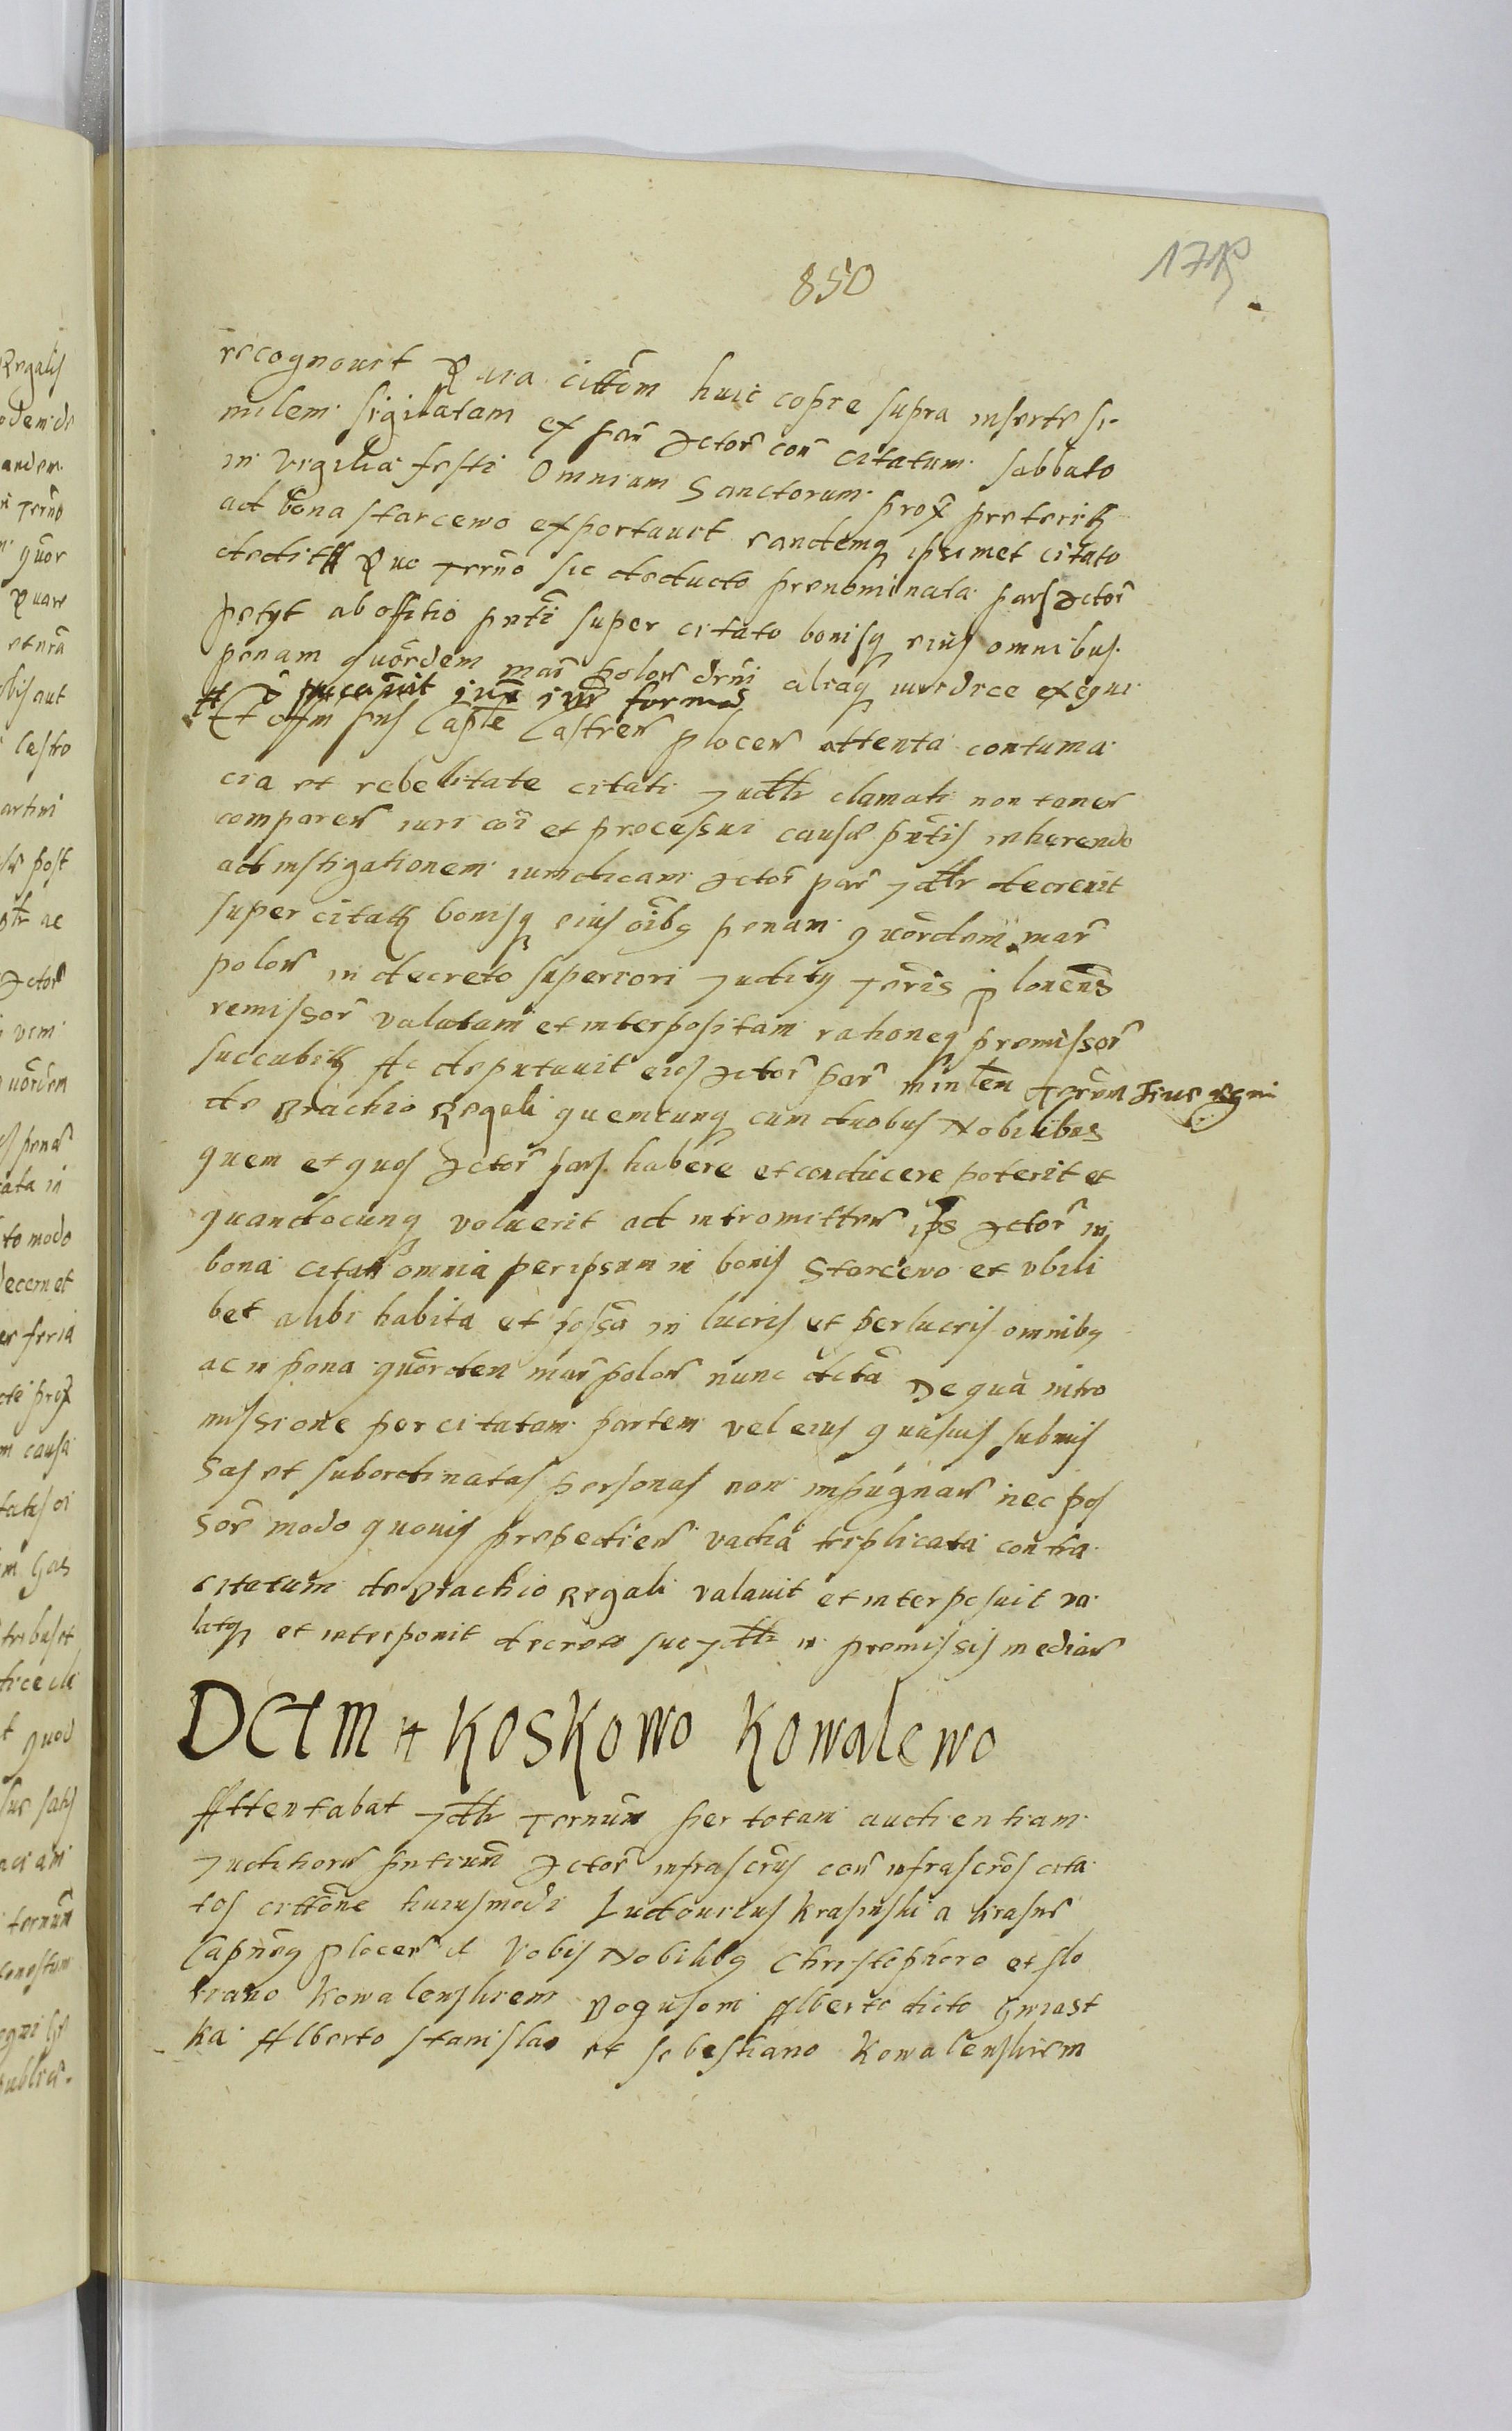 850
recognouit Quia cittom huic copie supra inserte si
milem sigilatam ex par Actor con citatum sabbato
in vigilia festi Omnium Sanctorum prox preterit
ad bona starcewo exportauit eandemq ipsimet citato
dedit Quo Termo sic deducto prenominata pars Actor
petyt ab offitio pnti super citato bonisq eius omnibus
penam quordem mar polon aliaq iuridice exequi
iux iur formas
Et offm Castren plocen attenta contuma
cia et rebelitate citati Judtr clamati non tamen
comparen iuri coi et processui cause pntis inherendo
ad instigationem iuridicam Actor par Jdtr decreuit
super citat bonisq eius oibq penam quordem mar
polon in decreto superiori Judicy Teris plonens
remissor valatam et interpositam rationeq premissor
succubit Ac deputauit eidem Actor par minlem Terem siue regni
de Brachio Regali quemcunq cum duobus Nobilibus
quem et quos Actor pars habere et conducere poterit et
quandocunq voluerit ad intromitten ips Actor in
bona citati omnia per ipsum in bonis Starcewo et vbili
bet alibi habita et possa in lucris et perlucris omnibq
ac in pena quordem mar polon nunc dcta De qua intro
missione per citatam partem vel eius quasuis submis
sas et subordinatas personas non impugnan nec pos
sor modo quouis prepedien vadia triplicata contra
citatum de Brachio Regali valauit et interposuit va
latq et interponit decreto suo Jdtr in premissis median
Dctm + Koskowo Kowalewo
Attentabat Jdtr Ternum per totam audientiam
Juditiorum pntium Actor infrascrus con infrascros cita
tos cittone huiusmodi Ludouicus Krasinski a Krasne
Capneq plocen Vobis Nobilibq Christophoro et flo
riano Kowalewskiem Bogusoni Alberto dicto Gwiast
ka Alberto Stanislao et Sebestiano Kowalewskiem